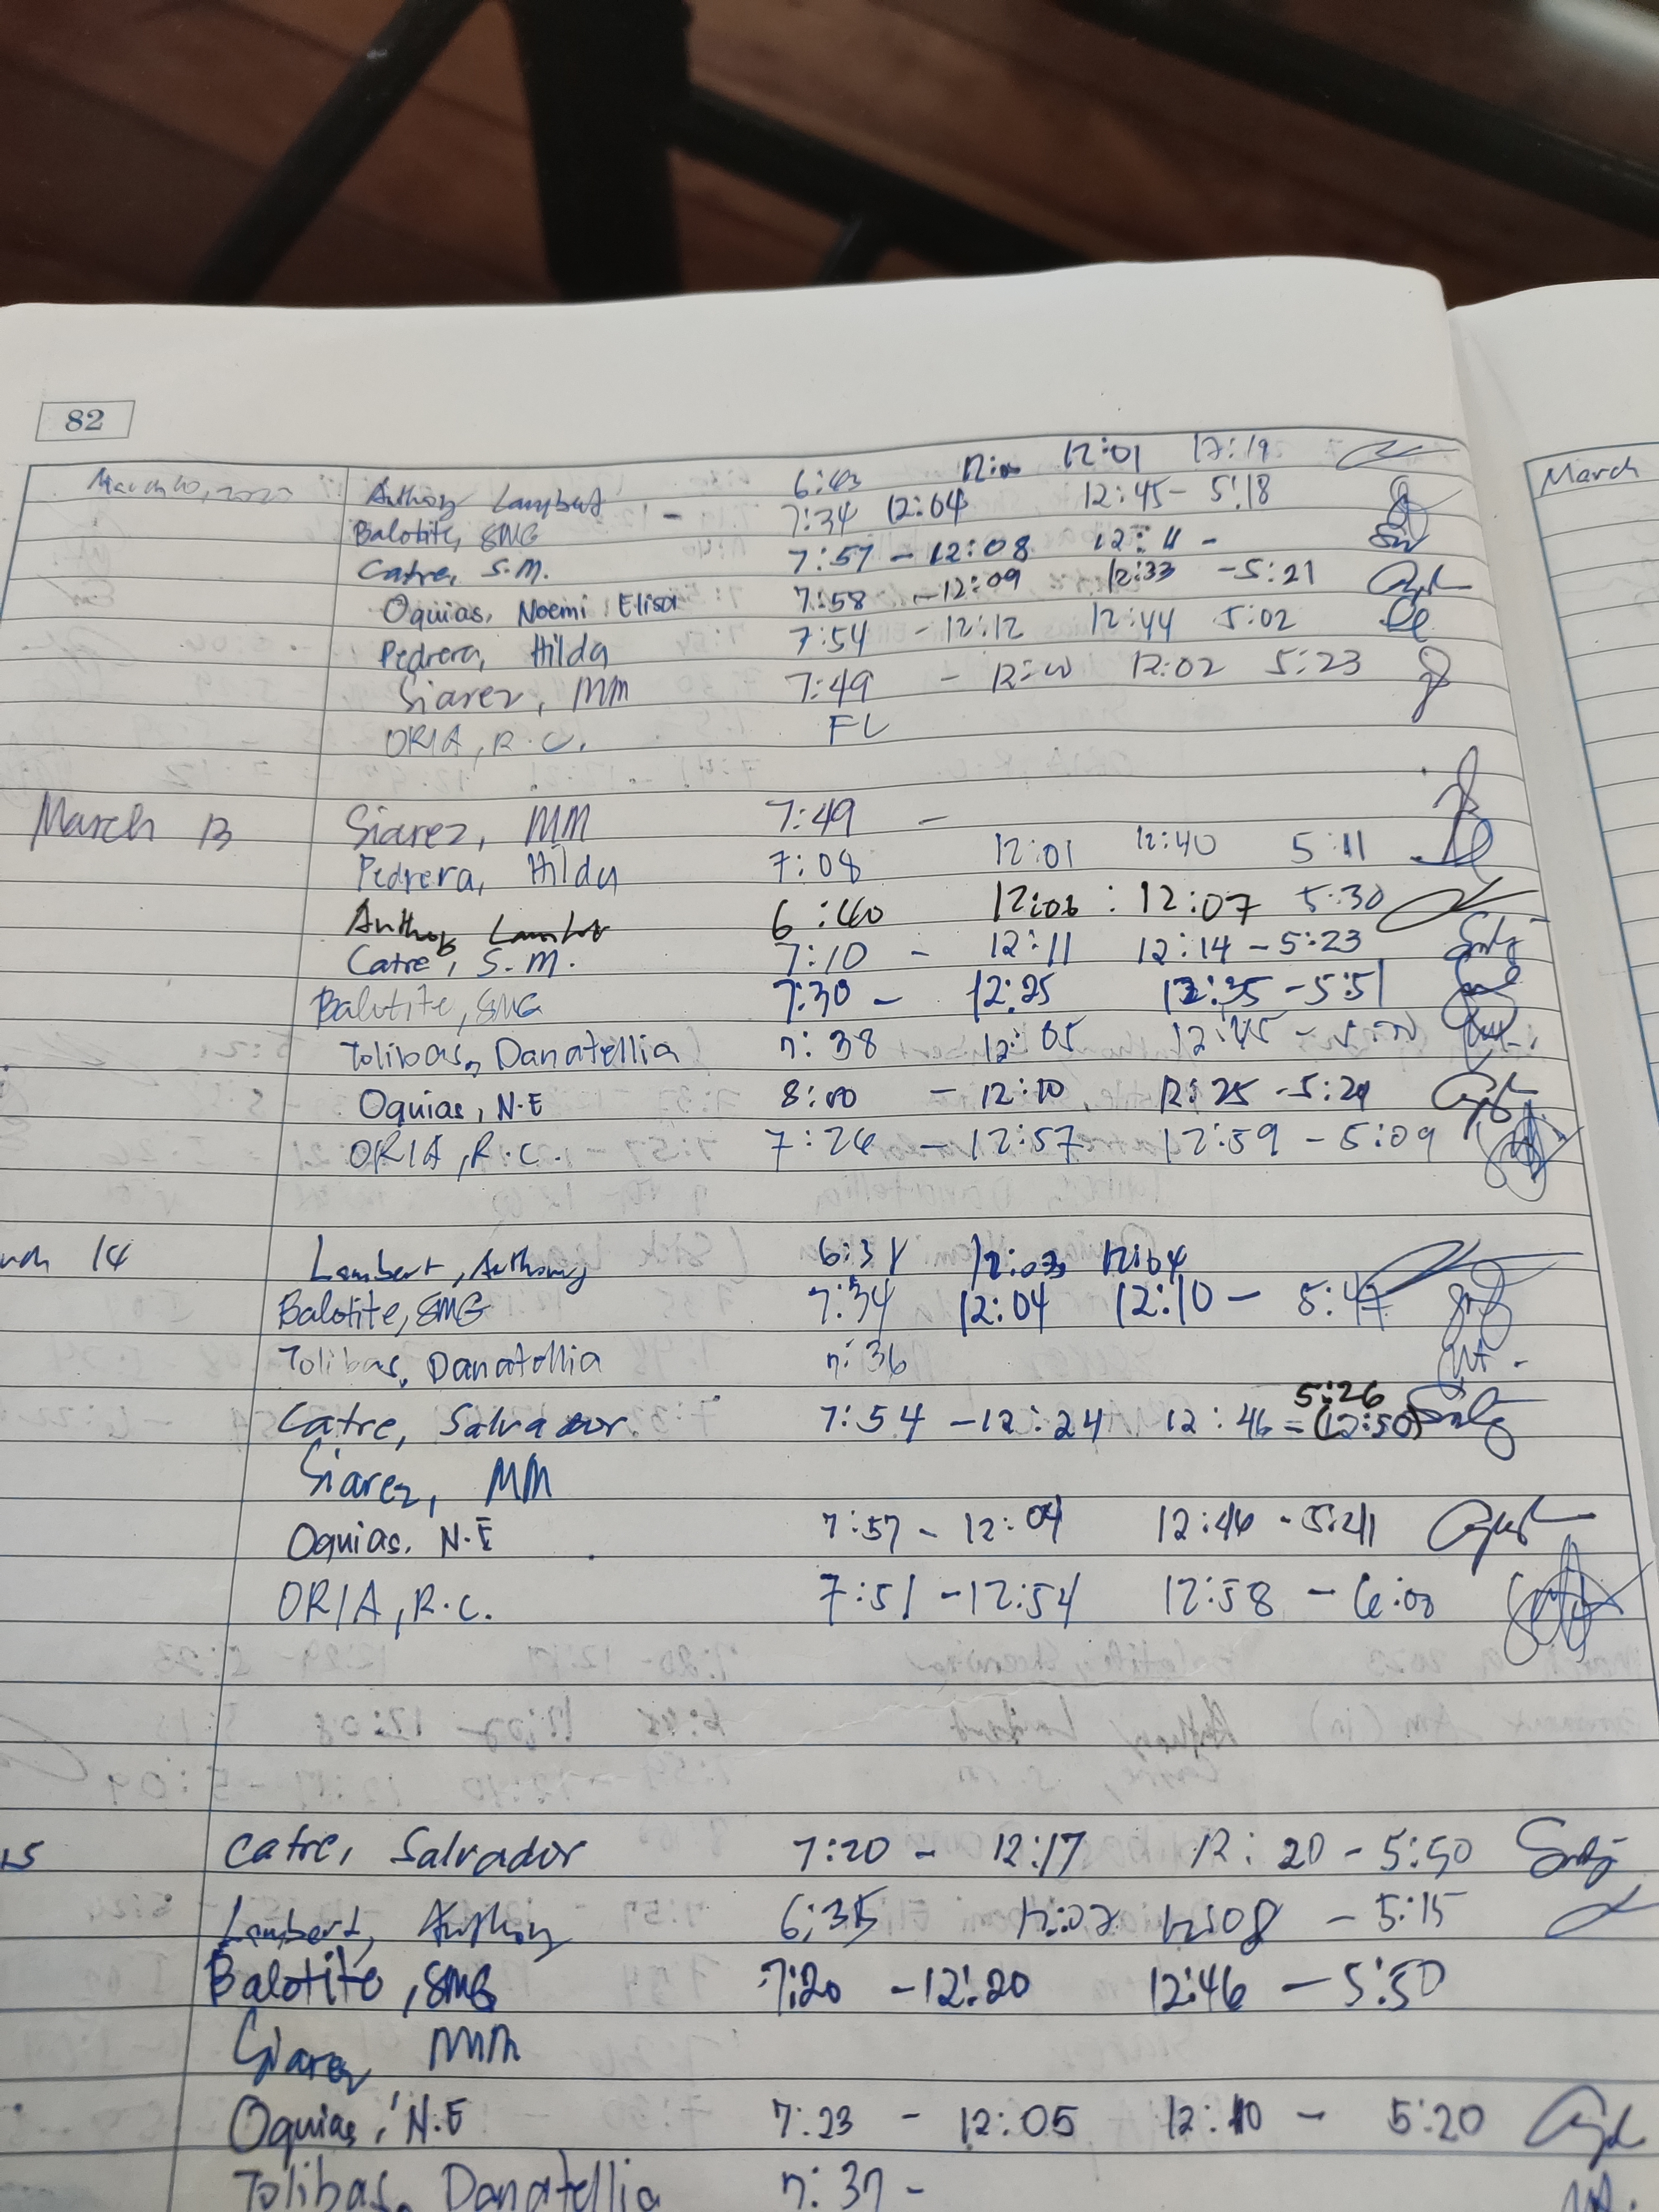 82
March
March 10, 2023 Anthony Lambert 6:43 12:00 12:01 17:19
Balotite, SMG - 7:34 12:04 12:45 - 5:18
Catre, S.M. 7:57 - 12:08 12:11 -
Oquias, Noemi Elisa 7:58 - 12:09 12:33 - 5:21
Pedrera, Hilda 7:54 - 12:12 12:44 5:02
Siarez, MM 7:49 - 12:00 12:02 5:23
ORIA, R.C. FL
March 13 Siarez, MM 7:49 -
Pedrera, Hilda 7:08 12:01 12:40 5:11
Anthony Lambert 6:40 12:06 : 12:07 5:30
Catre, S.M. 7:10 - 12:11 12:14 - 5:23
Balotite, SMG 7:30 - 12:25 12:35 - 5:51
Tolibas, Danatellia 7:38 12:05 12:45 -
Oquias, N.E 8:00 - 12:10 12:25 - 5:29
ORIA, R.C. 7:26 - 12:57 12:59 - 5:09
14 Lambert, Anthony 6:38 12:03 12:04
Balotite, SMG 7:34 12:04 12:10 - 5:47
Tolibas, Danatellia 7:36
5:26
Catre, Salvador 7:54 - 12:24 12:46 - (12:50)
Siarez, MM
Oquias, N.E 7:57 - 12:04 12:46 - 5:41
ORIA, R.C. 7:51 - 12:54 12:58 - 6:00
15 Catre, Salvador 7:20 - 12:17 12:20 - 5:50
Lambert, Anthony 6:35 12:07 12:08 - 5:15
Balotite, SMG 7:20 - 12:20 12:46 - 5:50
Siarez MM
Oquias, N.E 7:23 - 12:05 12:10 - 5:20
Tolibas, Danatellia 7:37 -